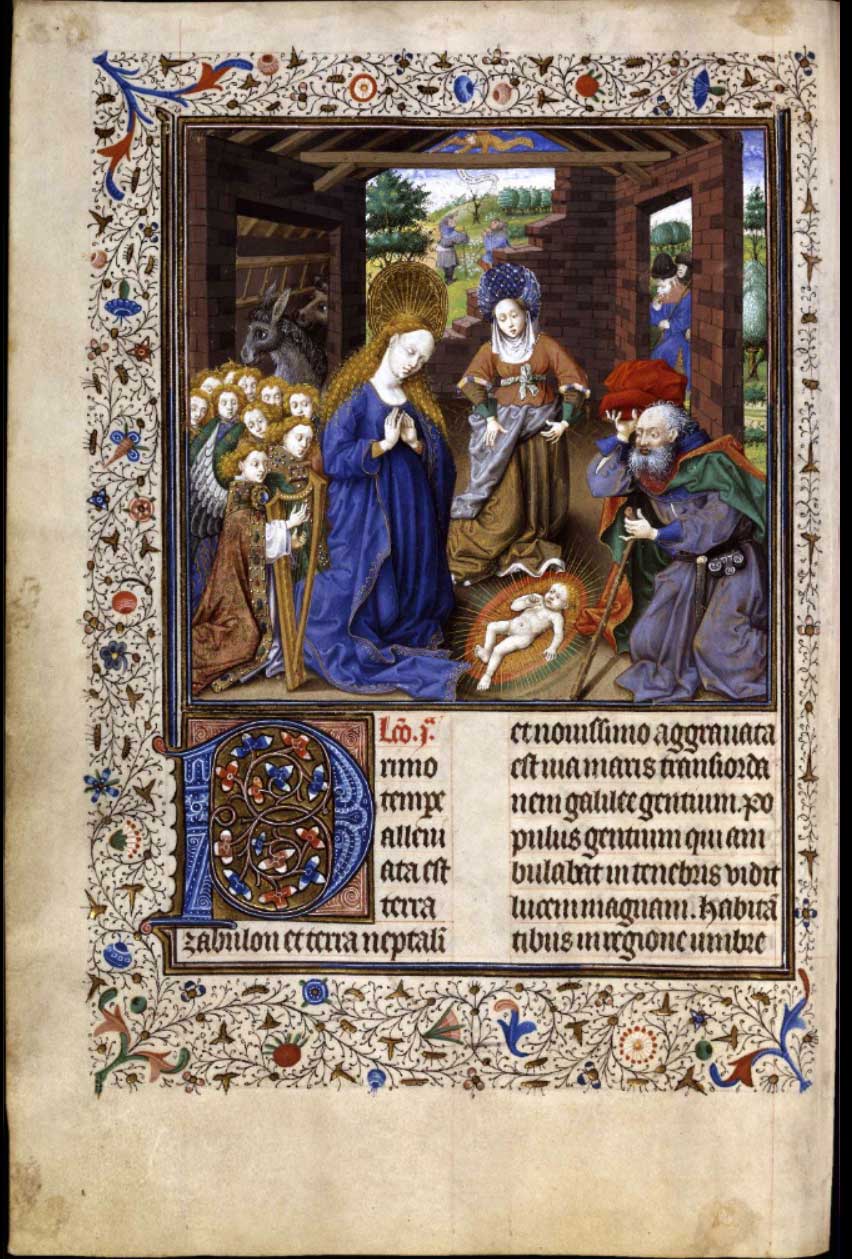 Lcõ. j.ª
Primo
tempe
alleui
ata est
terra
zabulon et terra neptalī
et nouissimo aggrauata
est uia maris transiorda
nem galilee gentium. po
pulus gentium qui am
bulabat in tenebris vidit
lucem magnam. habitā
tibus in regione umbre